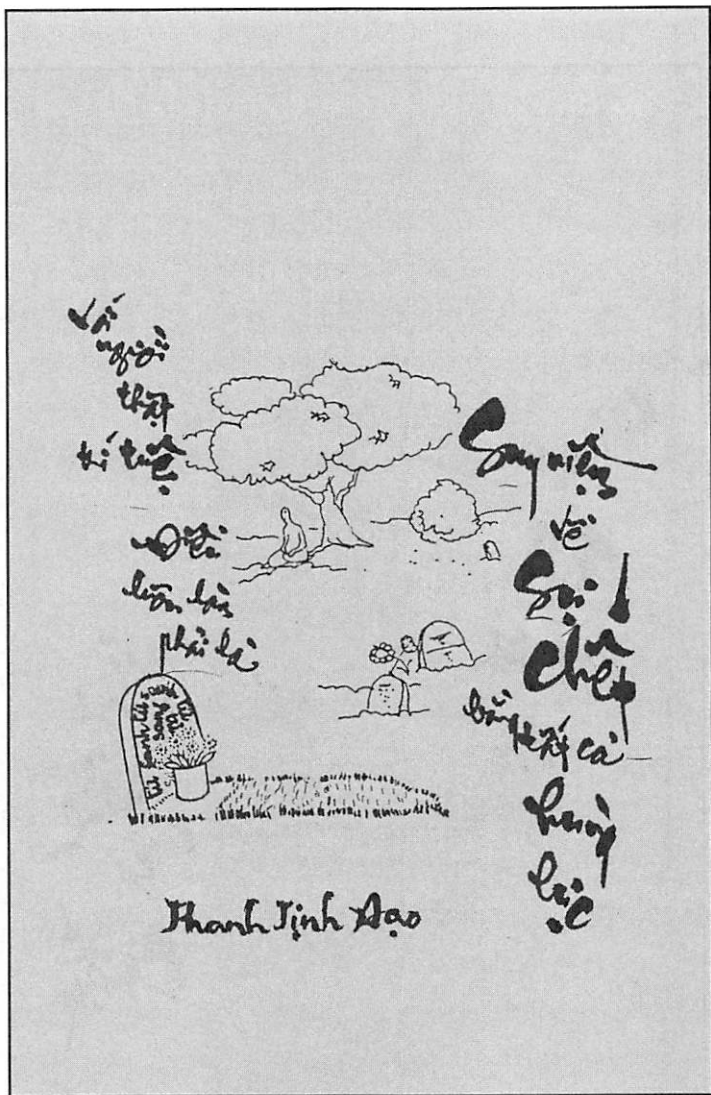 Với
người
thật
trí tuệ
Điều
luôn làm
phải là
Suy niệm
về
Sự
Chết
bằng tất cả
hùng
lực
Thanh Tịnh Đạo